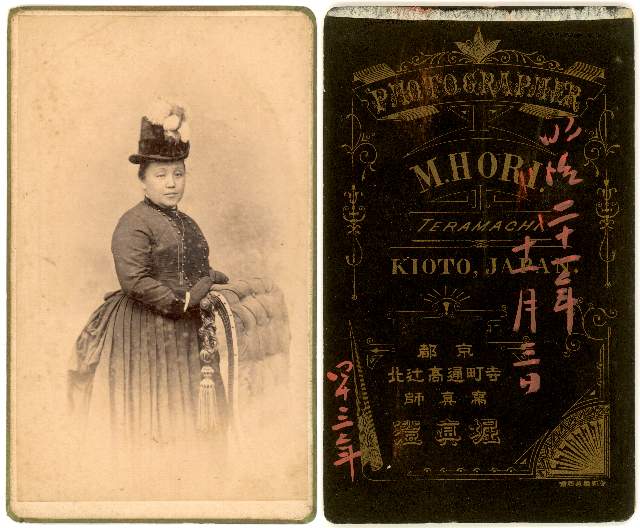 PHOTOGRAPHER
M. HORI.
TERAMACHI
KIOTO, JAPAN.
明治二十一年
十一月三日
四十三年
都京
北辻高通町寺
師真寫
堀真澄